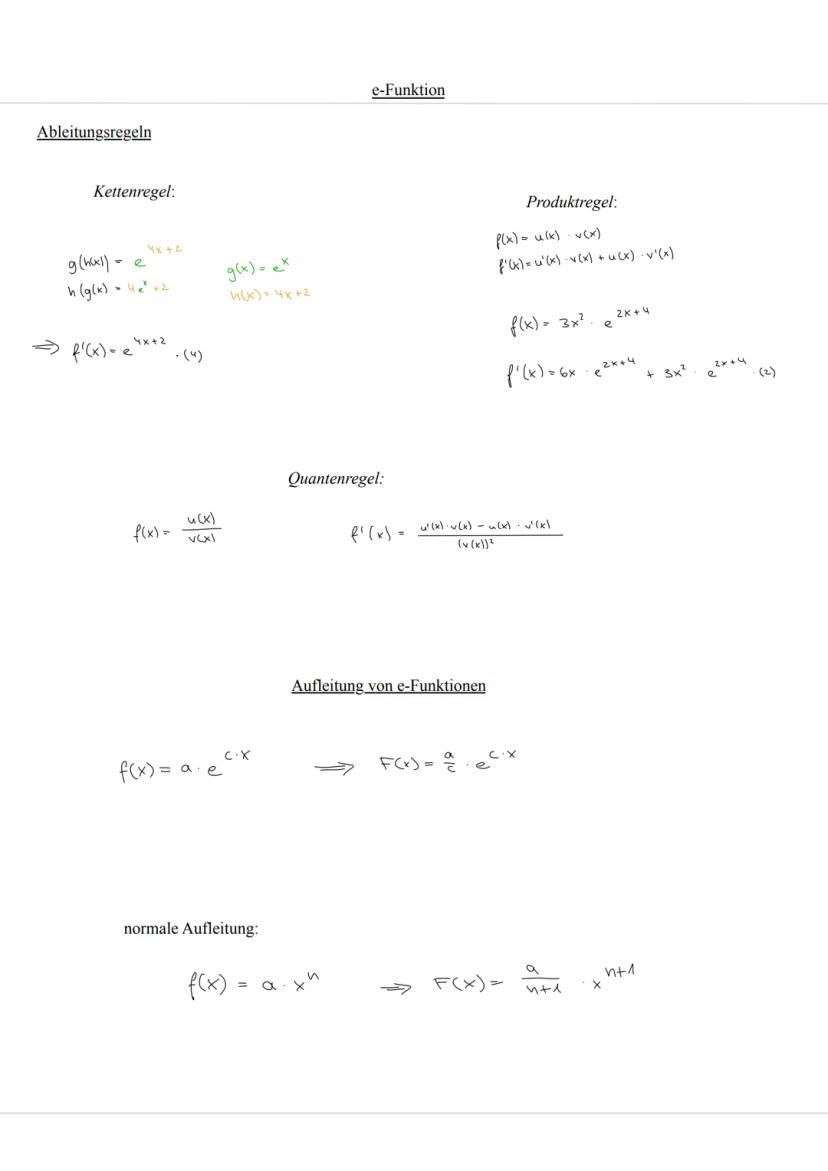 e-Funktion
Ableitungsregeln
Kettenregel:
g(h(x)) = e^{4x+2}
h(g(x) = 4e^x+2
g(x) = e^x
h(x) = 4x+2
⇒ f'(x) = e^{4x+2} · (4)
Produktregel:
f(x) = u(x) · v(x)
f'(x) = u'(x) · v(x) + u(x) · v'(x)
f(x) = 3x² · e^{2x+4}
f'(x) = 6x · e^{2x+4} + 3x² · e^{2x+4} · (2)
Quantenregel:
f(x) = u(x)/v(x)
f'(x) = u'(x) · v(x) − u(x) · v'(x)/(v(x))²
Aufleitung von e-Funktionen
f(x) = a · e^{c·x} ⇒ F(x) = a/c · e^{c·x}
normale Aufleitung:
f(x) = a · x^n ⇒ F(x) = a/n+1 · x^{n+1}